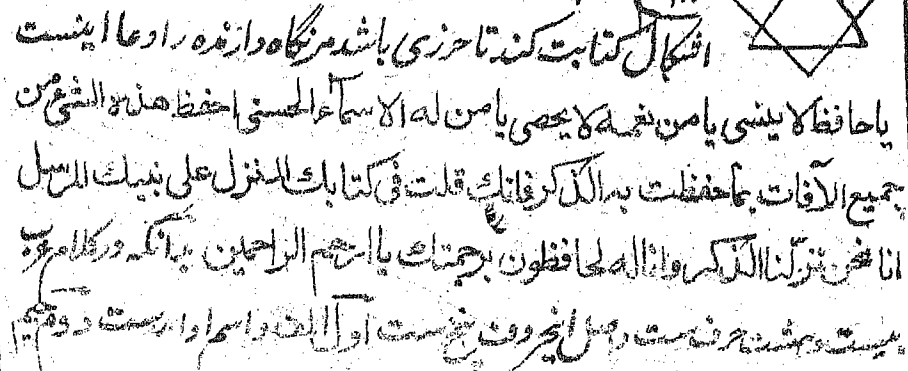 اشکال کتابت کند تا حرزی باشد مر نگاه دارنده را و دعا اینست
یا حافظا لا ینسی یا من نعمه لا یحصی یا من له الاسماء الحسنی احفظ هذه الشیء من
جمیع الآفات بما حفظت به الذکر فانک قلت فی کتابک المنزل علی نبیک المرسل
انا نحن نزلنا الذکر وانا له لحافظون برحمتک یا ارحم الراحمین بدانکه در کلام عرب
بیست و هشت حرف است و اصل این حروف پنج است اول الف و اسم او است دوم